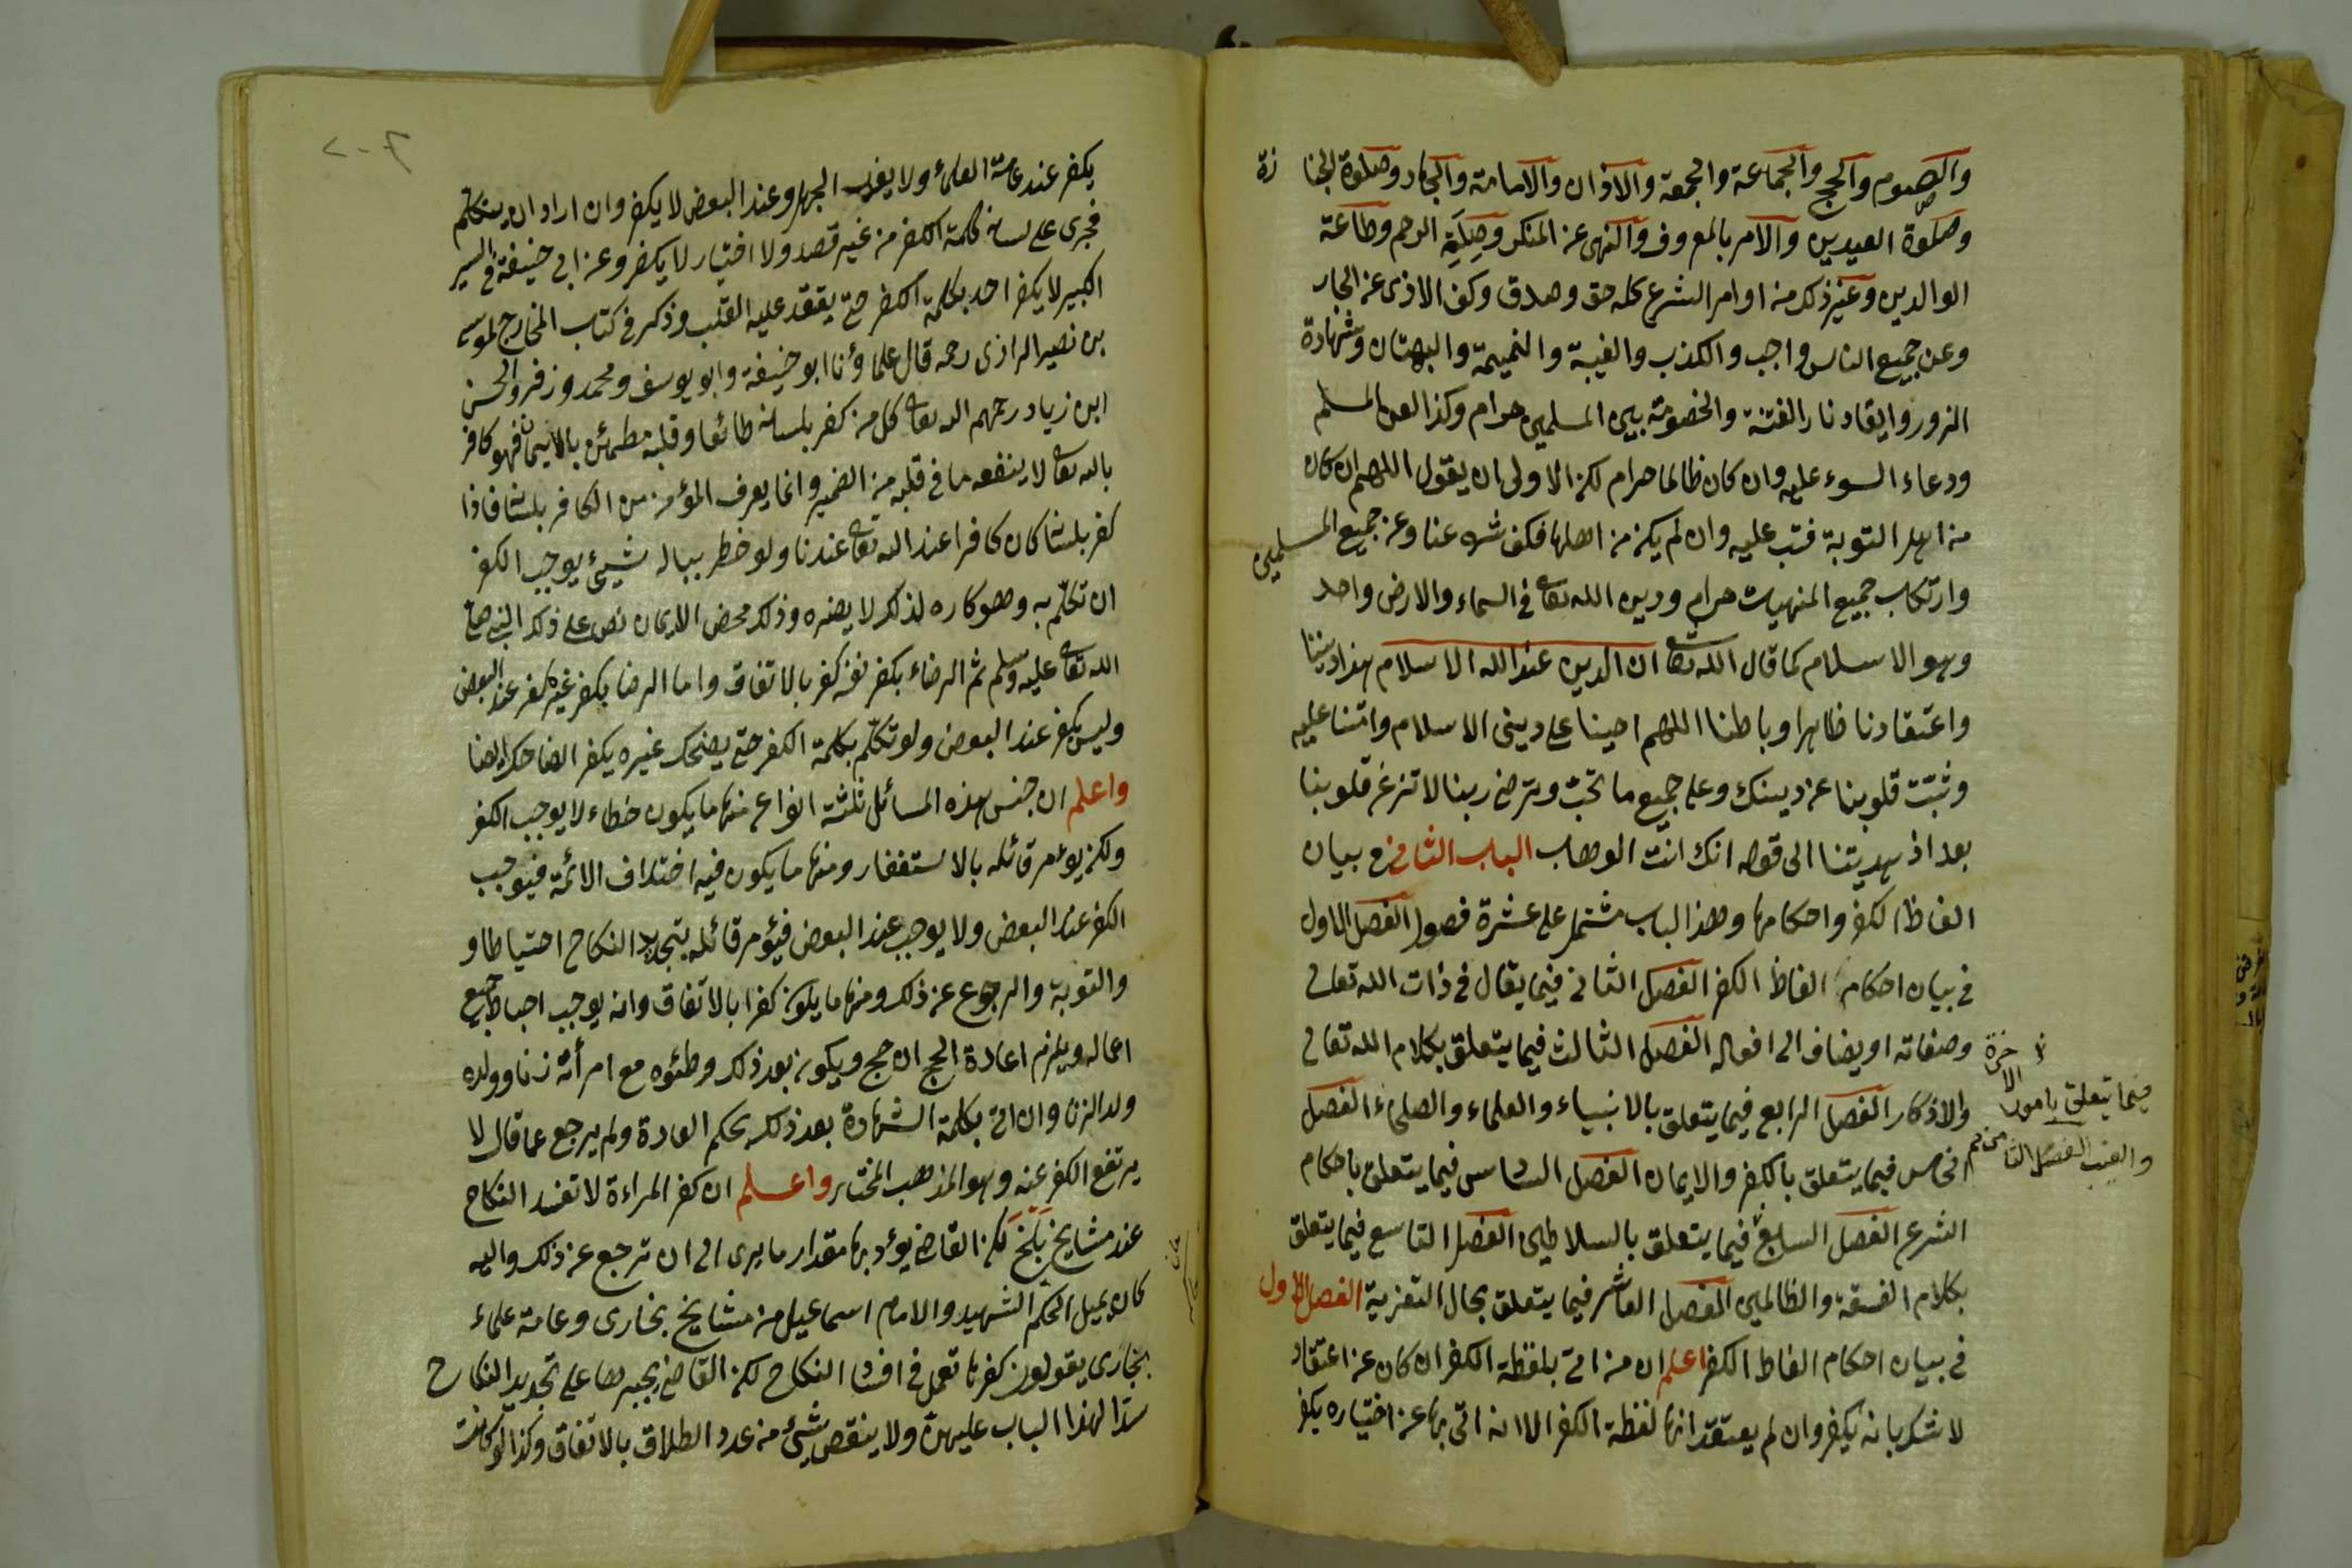 والصوم والحج والجماعة والجمعة والاذان والامامة والجهاد وصلوة الجنازة
وصلوة العيدين والامر بالمعروف والنهى عن المنكر وصلة الرحم وطاعة
الوالدين وغير ذلك من اوامر الشرع كله حق وصدق وكف الاذى عن الجار
وعن جميع الناس واجب والكذب والغيبة والنميمة والبهتان وشهادة
الزور وايقاد نار الفتنة والخصومة بين المسلمين حرام وكذا لعن المسلم
ودعاء السوء عليه وان كان ظالما حرام لكن الاولى ان يقول اللهم ان كان
من اهل التوبة فتب عليه وان لم يكن من اهلها فكف شره عنا وعن جميع المسلمين
وارتكاب جميع المنهيات حرام ودين الله تعا فى السماء والارض واحد
وهو الاسلام كما قال الله تعا ان الدين عند الله الاسلام هذا ديننا
واعتقادنا ظاهرا وباطنا اللهم احينا على دين الاسلام وامتنا عليه
وثبت قلوبنا عن دينك وعلى جميع ما تحب وترضى ربنا لا تزغ قلوبنا
بعد اذ هديتنا الى قوله انك انت الوهاب الباب الثانى فى بيان
الفاظ الكفر واحكامها وهذا الباب مشتمل على عشرة فصول الفصل الاول
فى بيان احكام الفاظ الكفر الفصل الثانى فيما يقال فى ذات الله تعالى
وصفاته او يضاف الى افعاله الفصل الثالث فيما يتعلق بكلام الله تعالى
والاذكار الفصل الرابع فيما يتعلق بالانبياء والعلماء والصلحاء الفصل
الخامس فيما يتعلق بالكفر والايمان الفصل السادس فيما يتعلق باحكام
الشرع الفصل السابع فيما يتعلق بالسلاطين الفصل التاسع فيما يتعلق
بكلام الفسقة والظالمين الفصل العاشر فيما يتعلق بحال التعزية الفصل الاول
فى بيان احكام الفاظ الكفر اعلم ان من اتى بلفظة الكفر ان كان عن اعتقاد
لا شك بانه يكفر وان لم يعتقد انها لفظة الكفر الا انه اتى بها عن اختياره يكفر
فيما يتعلق بامور الاخرة
والغيب الفصل الثامن
يكفر عند عامة العلماء ولا يعذر بالجهل وعند البعض لا يكفر وان اراد ان يتكلم
فجرى على لسانه كلمة الكفر من غير قصد ولا اختيار لا يكفر وعن ابى حنيفة فى السير
الكبير لا يكفر احد بكلمة الكفر حتى يعقد عليه القلب وذكر فى كتاب المخارج لموسى
بن نصير الرازى رحمه قال علماؤنا ابو حنيفة وابو يوسف ومحمد وزفر والحسن
ابن زياد رحمهم الله تعا كل من كفر بلسانه طائعا وقلبه مطمئن بالايمان فهو كافر
بالله تعا لا ينفعه ما فى قلبه من الضمير وانما يعرف المؤمن من الكافر بلسانه فاذا
كفر بلسانه كان كافرا عند الله تعا عندنا ولو خطر بباله شيئ يوجب الكفر
ان تكلم به وهو كاره لذلك لا يضره وذلك محض الايمان نص على ذلك النبى صلى
الله تعا عليه وسلم ثم الرضاء بكفر نفسه كفر بالاتفاق واما الرضا بكفر غيره كفر عند البعض
وليس بكفر عند البعض ولو تكلم بكلمة الكفر حتى يضحك غيره يكفر الضاحك ايضا
واعلم ان جنس هذه المسائل ثلثة انواع منها ما يكون خطاء لا يوجب الكفر
ولكن يؤمر قائله بالاستغفار ومنها ما يكون فيه اختلاف الائمة فيوجب
الكفر عند البعض ولا يوجب عند البعض فيؤمر قائله بتجديد النكاح احتياطا و
والتوبة والرجوع عن ذلك ومنها ما يكون كفرا بالاتفاق وانه يوجب احباط جميع
اعماله ويلزم اعادة الحج ان حج ويكون بعد ذلك وطئوه مع امرأته زنا وولده
ولد الزنا وان اتى بكلمة الشهادة بعد ذلك بحكم العادة ولم يرجع عما قال لا
يرتفع الكفر عنه وهو المذهب المختار واعلم ان كفر المراءة لا تفسد النكاح
عند مشايخ بلخ لكن القاضى يؤدبها مقدار ما يرى الى ان ترجع عن ذلك واليه
كان يميل الحكم الشهيد والامام اسماعيل من مشايخ بخارى وعامة علماء
بخارى يقولون كفرها تعمل فى افساد النكاح لكن القاضى يجبرها على تجديد النكاح
سدا لهذا الباب عليهن ولا ينقص شيئ من عدد الطلاق بالاتفاق وكذا لو كانت